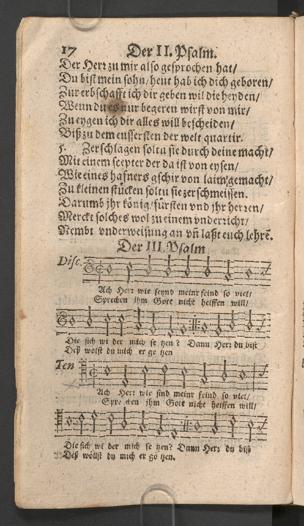 17 Der II. Psalm.
Der Herr zu mir also gesprochen hat/
Du bist mein sohn/ heut hab ich dich geboren/
Zur erbschafft ich dir geben wil die heyden/
Wenn du es nur begeren wirst von mir/
Zu eygen ich dir alles will bescheiden/
Biß zu dem eussersten der welt quartir.
5. Zerschlagen soltu sie durch deine macht/
Mit einem scepter der da ist von eysen/
Wie eines hafners gschir von laim gemacht/
Zu kleinen stücken soltu sie zerschmeissen.
Darumb jhr könig/ fürsten vnd jhr herren/
Merckt solches wol zu einem vnderricht/
Nembt vnderweisung an vñ laßt euch lehrē.
Der III. Psalm
Disc.
Ach Herr wie seynd meinr feind so viel/
Sprechen jhm Gott nicht helffen will/
Die sich wi der mich se tzen? Dann Herr du bist
Deß wolst du mich er ge tzen
Ten
Ach Herr wie sind meinr feind so viel/
Spre chen jhm Gott nicht helffen will/
Die sich wi der mich se tzen? Dann Herr du bist
Deß wöllst du mich er ge tzen.